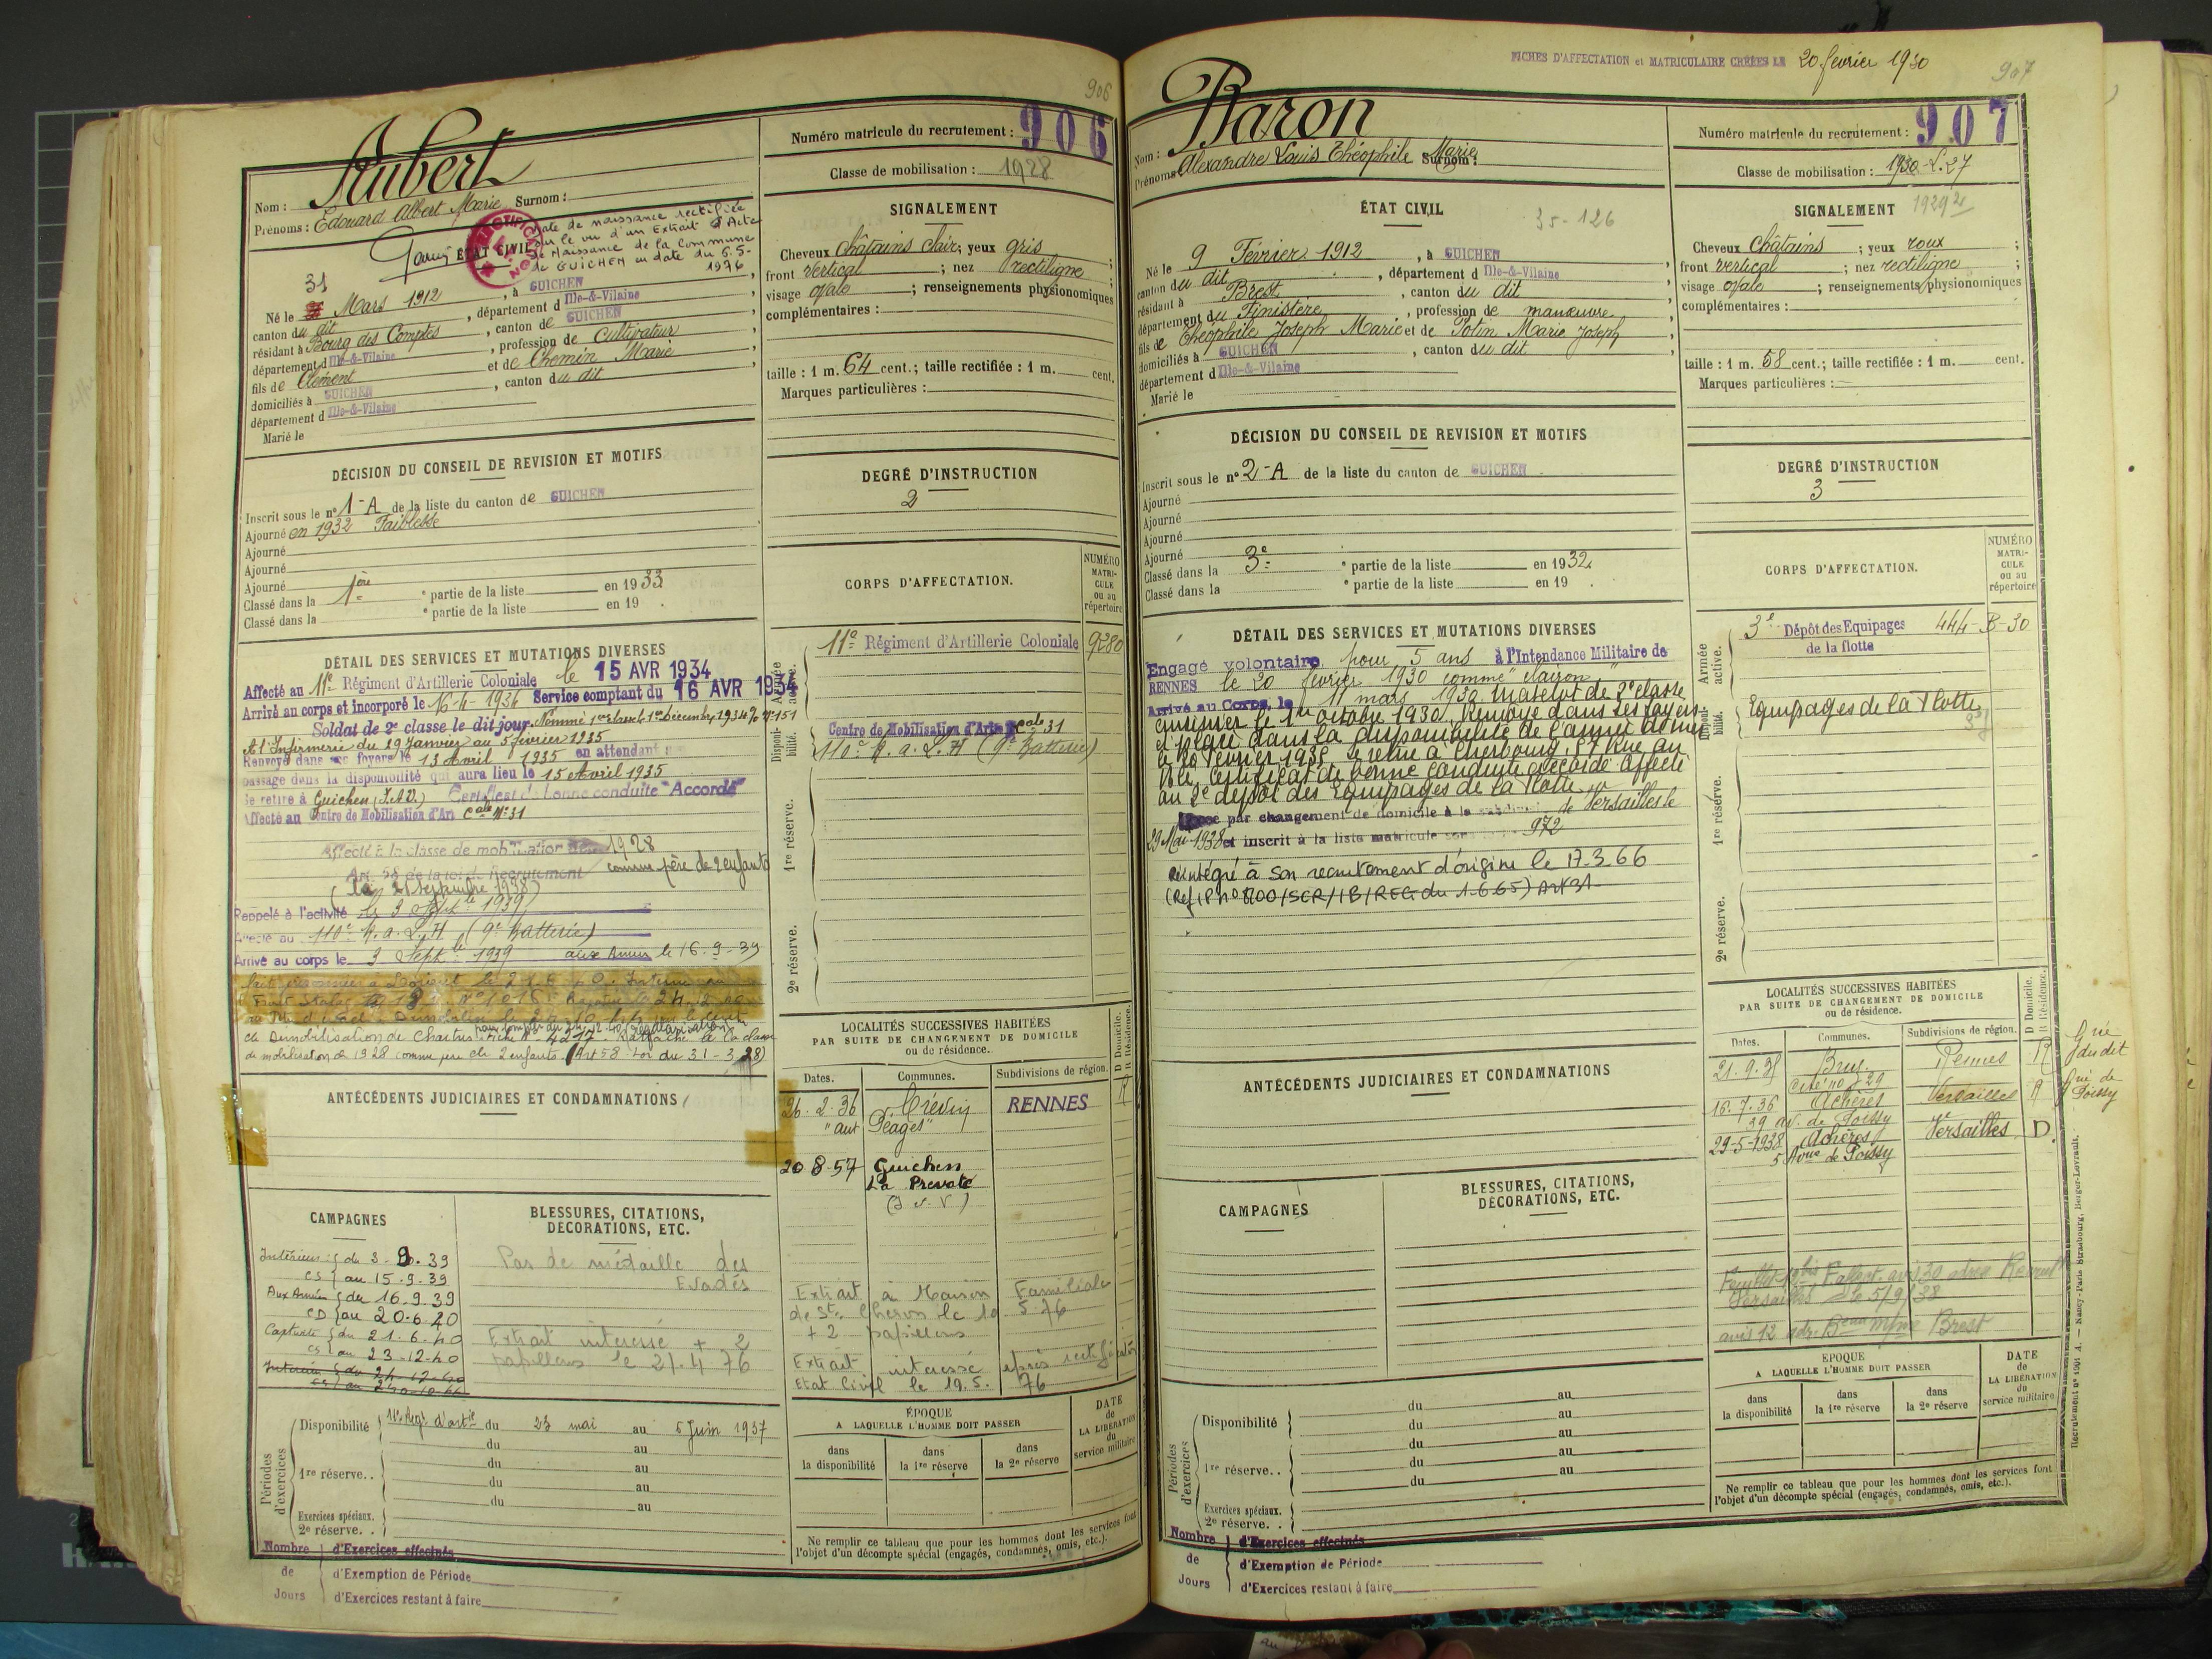 906
Aubert
Nom : Surnom :
Prénoms : Edouard Albert Marie
Numéro matricule du recrutement : 906
Classe de mobilisation : 1928
ÉTAT CIVIL
Date de naissance rectifiée
sur le vu d'un Extrait d'Acte
de Naissance de la Commune
de GUICHEN en date du 6.5-
1976
31
Né le Mars 1912, à GUICHEN
canton du dit, département d Ille-&-Vilaine
résidant à Bourg des Comptes, canton de GUICHEN
département d Ille-&-Vilaine, profession de Cultivateur
fils de Clément et de Chemin Marie
domiciliés à GUICHEN, canton du dit
département d Ille-&-Vilaine
Marié le
SIGNALEMENT
Cheveux châtains clair; yeux gris;
front vertical; nez rectiligne;
visage ovale; renseignements physionomiques
complémentaires :
taille : 1 m. 64 cent.; taille rectifiée : 1 m. cent.
Marques particulières :
DÉCISION DU CONSEIL DE REVISION ET MOTIFS
Inscrit sous le n° 1-A de la liste du canton de GUICHEN
Ajourné en 1932 Faiblesse
Ajourné
Ajourné
Ajourné
Classé dans la 1ère ° partie de la liste en 1933
Classé dans la ° partie de la liste en 19 .
DEGRÉ D'INSTRUCTION
2
CORPS D'AFFECTATION.
NUMÉRO
MATRI-
CULE
ou au
répertoire
DÉTAIL DES SERVICES ET MUTATIONS DIVERSES
Affecté au 11e Régiment d'Artillerie Coloniale le 15 AVR 1934
Arrivé au corps et incorporé le 16-4-1934 Service comptant du 16 AVR 1934
Soldat de 2e classe le dit jour. Nommé 1ere classe le 1er décembre 1934 % N° 151
A l'Infirmerie du 29 Janvier au 5 février 1935
Renvoyé dans ses foyers le 13 Avril 1935 en attendant
passage dans la disponibilité qui aura lieu le 15 Avril 1935
Se retire à Guichen (I.&V.) Certificat de bonne conduite "Accordé"
Affecté au Centre de Mobilisation d'Art Cale N° 31
Affecté à la classe de mobilisation de 1928
Art. 58 de la loi de Recrutement comme père de 2 enfants
(le 21 septembre 1938)
Rappelé à l'activité le 3 Septbre 1939
Affecté au 110e R.A.L.H (9e Batterie)
Arrivé au corps le 3 Septbre 1939 aux Armées le 16-9-39
de Démobilisation de Chartres fiche N° 4217. Rattaché à la classe
de mobilisation de 1928 comme père de 2 enfants (Art 58 Loi du 31-3-28)
Armée active.
11e Régiment d'Artillerie Coloniale 9280
Disponi-bilité.
Centre de Mobilisation d'Artie Cale 31
110e R.A.L.H (9e Batterie)
1re réserve.
2e réserve.
LOCALITÉS SUCCESSIVES HABITÉES
PAR SUITE DE CHANGEMENT DE DOMICILE
ou de résidence.
D Domicile.
R Résidence.
Dates. Communes. Subdivisions de région.
26.2.36 Crévin RENNES R
"aux Péages"
20 8-57 Guichen
La Prevoté
(I.V.)
Extrait à Maison Familiale
de St Cheron le 10 5-76
+ 2 papillons
Extrait interessé après rectification
Etat Civil le 19.5. 76
ANTÉCÉDENTS JUDICIAIRES ET CONDAMNATIONS
CAMPAGNES
Intérieur : du 3-9.39
CS au 15.9.39
Aux Armées du 16.9.39
CD au 20.6.40
Captivité du 21.6.40
CS au 23-12-40
Intérieur du 24-12-40
BLESSURES, CITATIONS,
DÉCORATIONS, ETC.
Pas de médaille des
Evadés
Extrait interessé + 2
papillons le 21.4 76
Périodes d'exercices
Disponibilité 11e Regt d'artie du 23 mai au 5 Juin 1937
du au
1re réserve.. du au
du au
du au
Exercices spéciaux.
2e réserve. .
Nombre de Jours
d'Exercices effectués
d'Exemption de Période
d'Exercices restant à faire
ÉPOQUE
A LAQUELLE L'HOMME DOIT PASSER
dans la disponibilité
dans la 1re réserve
dans la 2e réserve
DATE
de
LA LIBÉRATION
du
service militaire
Ne remplir ce tableau que pour les hommes dont les services font
l'objet d'un décompte spécial (engagés, condamnés, omis, etc.).
FICHES D'AFFECTATION et MATRICULAIRE CRÉÉES LE 20 février 1930
907
Baron
Nom : Surnom :
Prénoms : Alexandre Louis Théophile Marie
Numéro matricule du recrutement : 907
Classe de mobilisation : 1930-L.27
ÉTAT CIVIL
35-126
Né le 9 Février 1912, à GUICHEN
canton du dit, département d Ille-&-Vilaine
résidant à Brest, canton du dit
département du Finistère, profession de manœuvre
fils de Théophile Joseph Marie et de Potin Marie Joseph
domiciliés à GUICHEN, canton du dit
département d Ille-&-Vilaine
Marié le
SIGNALEMENT
Cheveux châtains; yeux roux;
front vertical; nez rectiligne;
visage ovale; renseignements physionomiques
complémentaires :
taille : 1 m. 58 cent.; taille rectifiée : 1 m. cent.
Marques particulières :
DÉCISION DU CONSEIL DE REVISION ET MOTIFS
Inscrit sous le n° 2-A de la liste du canton de GUICHEN
Ajourné
Ajourné
Ajourné
Ajourné
Classé dans la 3e ° partie de la liste en 1932
Classé dans la ° partie de la liste en 19 .
DEGRÉ D'INSTRUCTION
3
CORPS D'AFFECTATION.
NUMÉRO
MATRI-
CULE
ou au
répertoire
DÉTAIL DES SERVICES ET MUTATIONS DIVERSES
Engagé volontaire pour 5 ans à l'Intendance Militaire de
RENNES le 20 février 1930 comme "clairon"
Arrivé au Corps, le 11 mars 1930. Matelot de 2e classe
cuisinier le 1er octobre 1930. Renvoyé dans ses foyers
et placé dans la disponibilité de l'armée de mer
le 20 février 1935 se retire à Cherbourg, 87 Rue au
Blé, Certificat de bonne conduite accordé. Affecté
au 2e dépôt des Equipages de la Flotte.
par changement de domicile à la de Versailles le
29 Mai 1938 et inscrit à la liste matricule sous 972
réintégré à son recrutement d'origine le 17.3.66
(Ref IP n° 8700/SCR/1B/REG du 1.6.65) Art 31
Armée active.
3e Dépôt des Equipages 444-B-30
de la flotte
Disponi-bilité.
Equipages de la Flotte
1re réserve.
2e réserve.
LOCALITÉS SUCCESSIVES HABITÉES
PAR SUITE DE CHANGEMENT DE DOMICILE
ou de résidence.
D Domicile.
R Résidence.
Dates. Communes. Subdivisions de région.
21.9.35 Bruz Rennes R
Cité n° 29
16.7.36 Achères Versailles R
29 av. de Poissy
29-5-1938 Achères Versailles D.
5 Avue de Poissy
du dit
Poissy
Versailles le 5/9/38
avis 12 Brest
ANTÉCÉDENTS JUDICIAIRES ET CONDAMNATIONS
CAMPAGNES
BLESSURES, CITATIONS,
DÉCORATIONS, ETC.
Périodes d'exercices
Disponibilité du au
du au
1re réserve.. du au
du au
du au
Exercices spéciaux.
2e réserve. .
Nombre de Jours
d'Exercices effectués
d'Exemption de Période
d'Exercices restant à faire
ÉPOQUE
A LAQUELLE L'HOMME DOIT PASSER
dans la disponibilité
dans la 1re réserve
dans la 2e réserve
DATE
de
LA LIBÉRATION
du
service militaire
Ne remplir ce tableau que pour les hommes dont les services font
l'objet d'un décompte spécial (engagés, condamnés, omis, etc.).